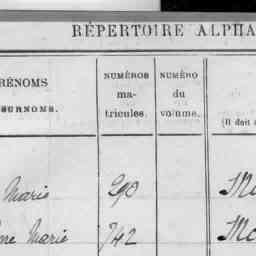 RÉPERTOIRE ALPHA
RÉNOMS
SURNOMS.
NUMÉROS
ma-
tricules.
NUMÉRO
du
volume.
(Il doit
Marie 290
Marie 742